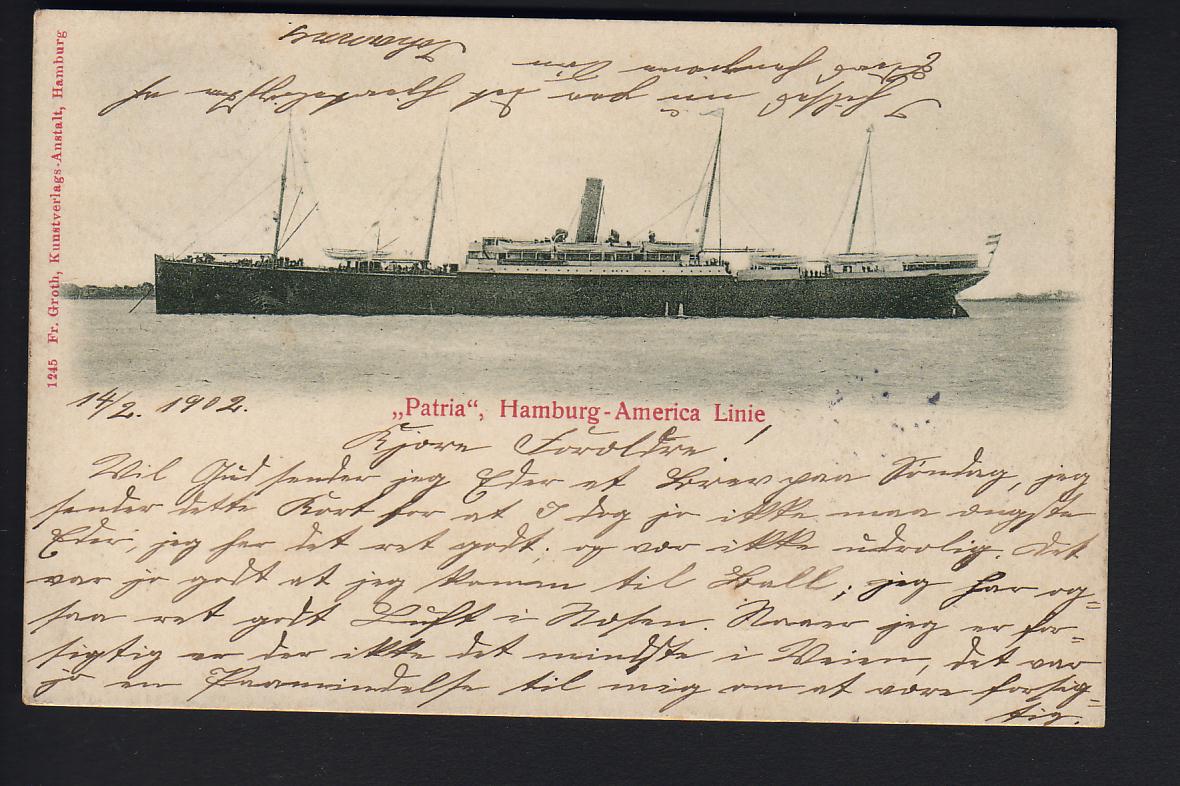 1245 Fr. Groth, Kunstverlags-Anstalt, Hamburg
„Patria“, Hamburg-America Linie
14/2. 1902.
Kjære Forældre!
Vil Gud sender jeg Eder et Brev paa Søndag, jeg
sender dette Kort for at I dog jo ikke maa ængste
Eder, jeg har det ret godt; og vær ikke urolig. Det
var jo godt at jeg kom til Ball; jeg har og=
saa ret godt Luft i Næsen. Naar jeg er for=
sigtig er der ikke det mindste i Veien, det var
jo en Paamindelse til mig om at være forsig=
tig.
I
Johannes